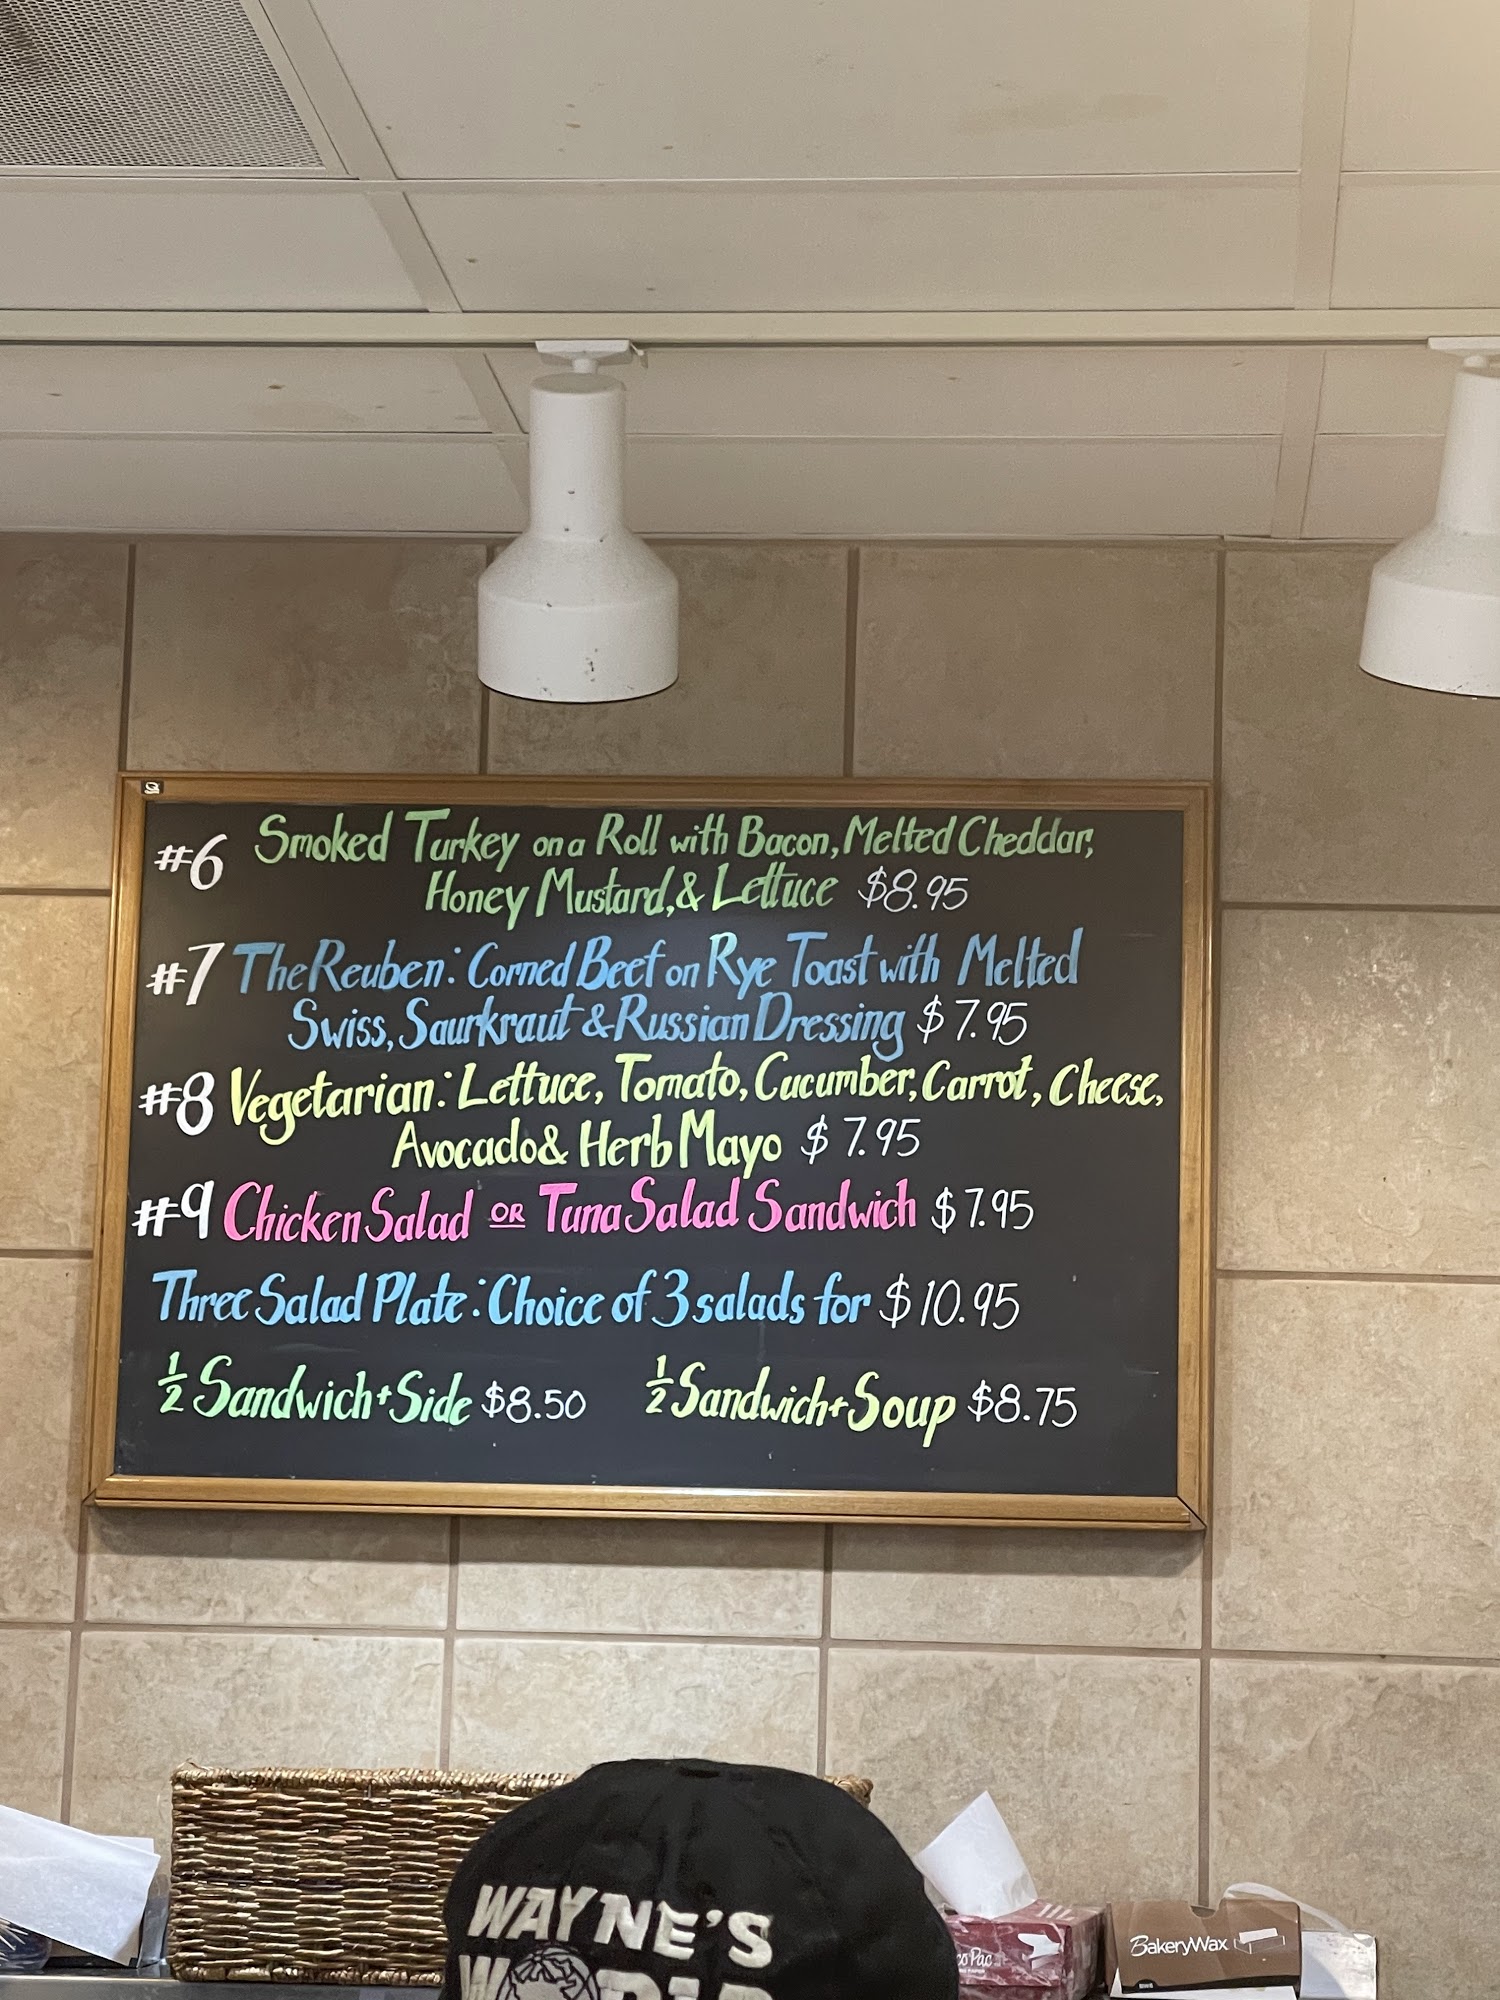 #6 Smoked Turkey on a Roll with Bacon, Melted Cheddar,
Honey Mustard, & Lettuce $8.95
#7 The Reuben: Corned Beef on Rye Toast with Melted
Swiss, Saurkraut & Russian Dressing $7.95
#8 Vegetarian: Lettuce, Tomato, Cucumber, Carrot, Cheese,
Avocado & Herb Mayo $7.95
#9 Chicken Salad OR Tuna Salad Sandwich $7.95
Three Salad Plate: Choice of 3 salads for $10.95
½ Sandwich + Side $8.50 ½ Sandwich + Soup $8.75
WAYNE'S
WORLD
BakeryWax